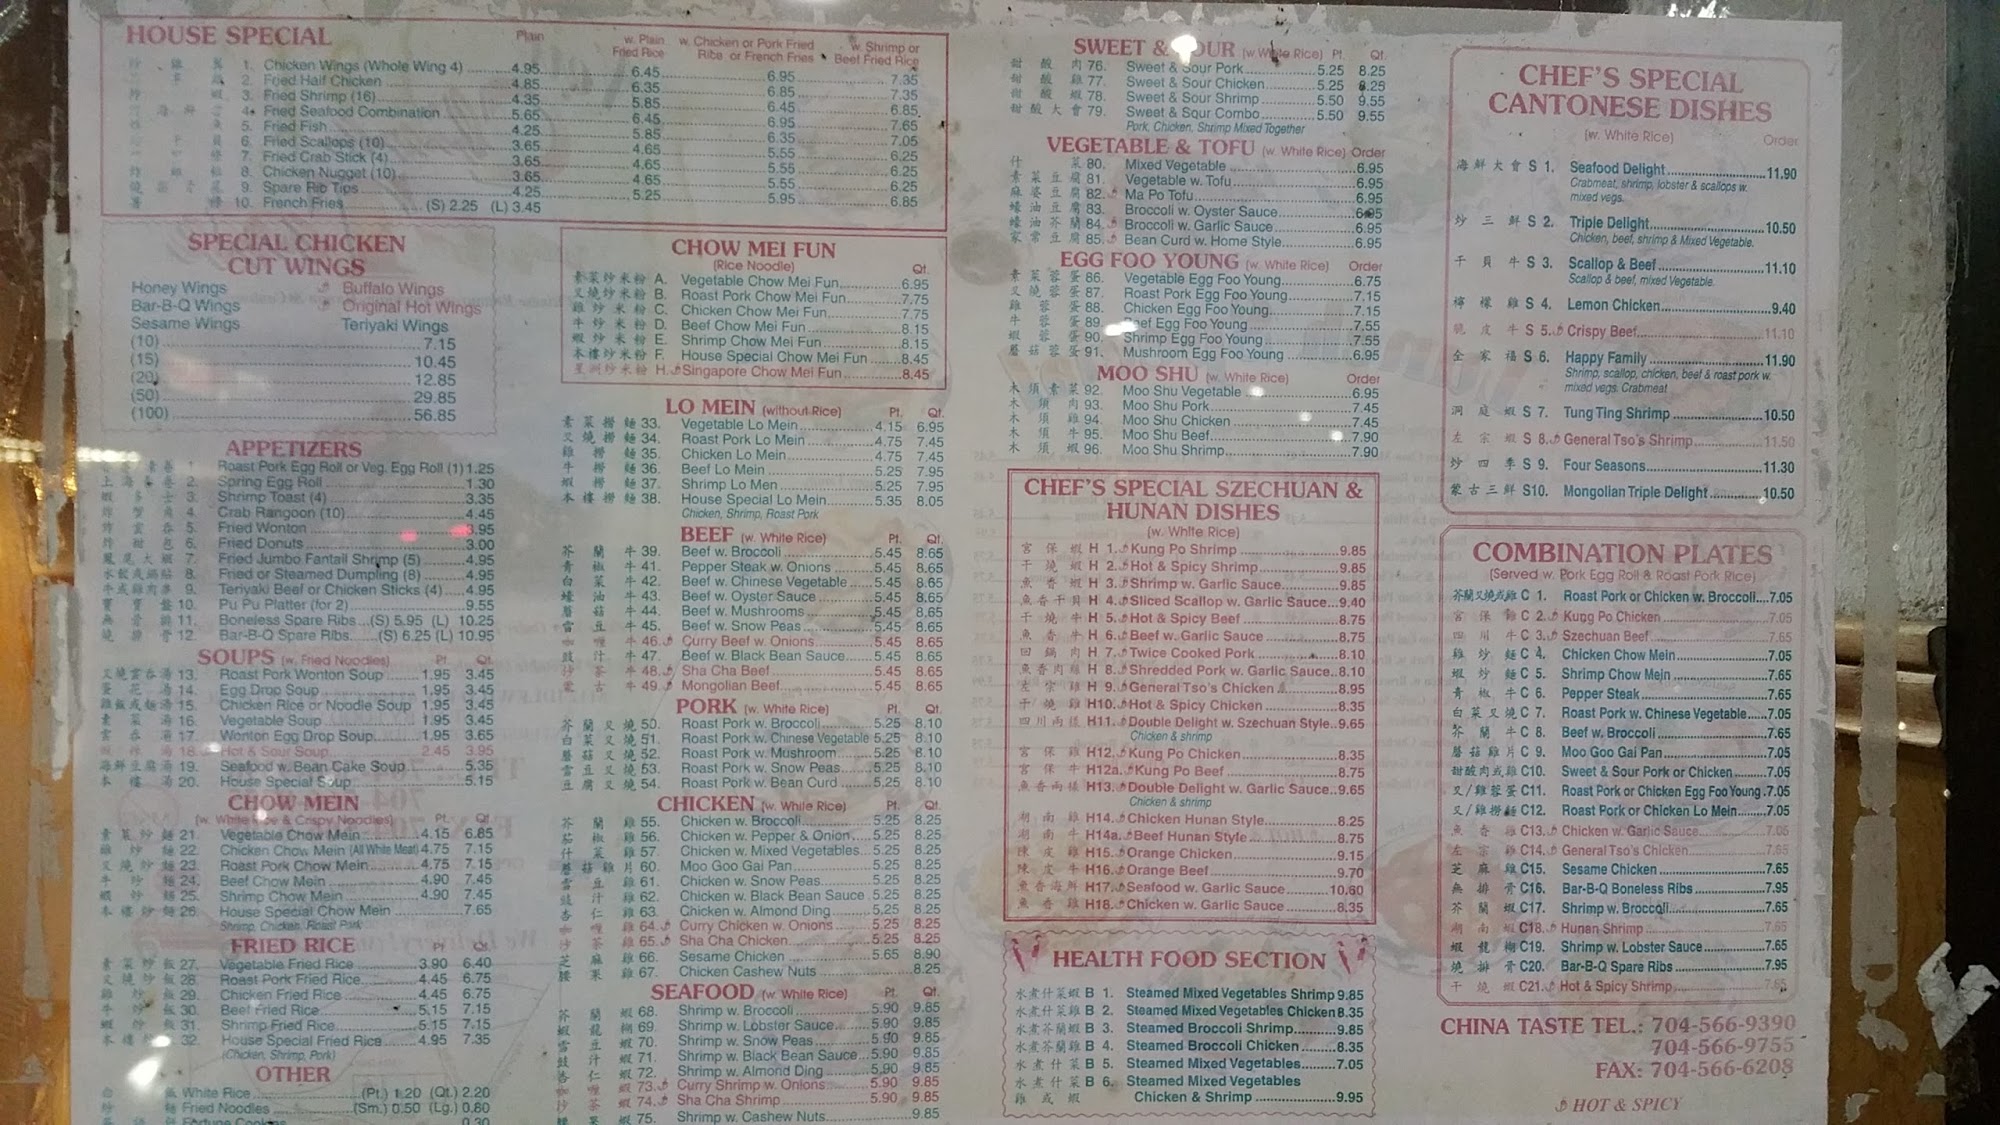 HOUSE SPECIAL
Plain
w. Plain Fried Rice
w. Chicken or Pork Fried Rice or French Fries
w. Shrimp or Beef Fried Rice
1. Chicken Wings (Whole Wing 4) 4.95 6.45 6.95 7.35
2. Fried Half Chicken 4.85 6.35 6.85 7.35
3. Fried Shrimp (16) 4.35 5.85 6.45 6.85
4. Fried Seafood Combination 5.65 6.45 6.95 7.65
5. Fried Fish 4.25 5.85 6.35 7.05
6. Fried Scallops (10) 3.65 4.65 5.55 6.25
7. Fried Crab Stick (4) 3.65 4.65 5.55 6.25
8. Chicken Nugget (10) 3.65 4.65 5.55 6.25
9. Spare Rib Tips 4.25 5.25 5.95 6.85
10. French Fries (S) 2.25 (L) 3.45
SPECIAL CHICKEN
CUT WINGS
Honey Wings Buffalo Wings
Bar-B-Q Wings Original Hot Wings
Sesame Wings Teriyaki Wings
(10) 7.15
(15) 10.45
(20) 12.85
(50) 29.85
(100) 56.85
APPETIZERS
1. Roast Pork Egg Roll or Veg. Egg Roll (1) 1.25
上海卷 2. Spring Egg Roll 1.30
蝦多士 3. Shrimp Toast (4) 3.35
炸蟹角 4. Crab Rangoon (10) 4.45
炸雲吞 5. Fried Wonton 3.95
炸甜包 6. Fried Donuts 3.00
鳳尾大蝦 7. Fried Jumbo Fantail Shrimp (5) 4.95
水餃或鍋貼 8. Fried or Steamed Dumpling (8) 4.95
牛或雞肉串 9. Teriyaki Beef or Chicken Sticks (4) 4.95
寶寶盤 10. Pu Pu Platter (for 2) 9.55
無骨排 11. Boneless Spare Ribs (S) 5.95 (L) 10.25
燒排骨 12. Bar-B-Q Spare Ribs (S) 6.25 (L) 10.95
SOUPS (w. Fried Noodles) Pt. Qt.
叉燒雲吞湯 13. Roast Pork Wonton Soup 1.95 3.45
蛋花湯 14. Egg Drop Soup 1.95 3.45
雞飯或麵湯 15. Chicken Rice or Noodle Soup 1.95 3.45
素菜湯 16. Vegetable Soup 1.95 3.45
雲吞湯 17. Wonton Egg Drop Soup 1.95 3.65
酸辣湯 18. Hot & Sour Soup 2.45 3.95
海鮮豆腐湯 19. Seafood w. Bean Cake Soup 5.35
本樓湯 20. House Special Soup 5.15
CHOW MEIN
(w. White Rice & Crispy Noodles) Pt. Qt.
素菜炒麵 21. Vegetable Chow Mein 4.15 6.85
雞炒麵 22. Chicken Chow Mein (All White Meat) 4.75 7.15
叉燒炒麵 23. Roast Pork Chow Mein 4.75 7.15
牛炒麵 24. Beef Chow Mein 4.90 7.45
蝦炒麵 25. Shrimp Chow Mein 4.90 7.45
本樓炒麵 26. House Special Chow Mein 7.65
Shrimp, Chicken, Roast Pork
FRIED RICE Pt. Qt.
素菜炒飯 27. Vegetable Fried Rice 3.90 6.40
叉燒炒飯 28. Roast Pork Fried Rice 4.45 6.75
雞炒飯 29. Chicken Fried Rice 4.45 6.75
牛炒飯 30. Beef Fried Rice 5.15 7.15
蝦炒飯 31. Shrimp Fried Rice 5.15 7.15
本樓炒飯 32. House Special Fried Rice 4.95 7.35
(Chicken, Shrimp, Pork)
OTHER
白飯 White Rice (Pt.) 1.20 (Qt.) 2.20
Fried Noodles (Sm.) 0.50 (Lg.) 0.80
Fortune Cookies 0.30
CHOW MEI FUN
(Rice Noodle) Qt.
素菜炒米粉 A. Vegetable Chow Mei Fun 6.95
叉燒炒米粉 B. Roast Pork Chow Mei Fun 7.75
雞炒米粉 C. Chicken Chow Mei Fun 7.75
牛炒米粉 D. Beef Chow Mei Fun 8.15
蝦炒米粉 E. Shrimp Chow Mei Fun 8.15
本樓炒米粉 F. House Special Chow Mei Fun 8.45
星洲炒米粉 H. Singapore Chow Mei Fun 8.45
LO MEIN (without Rice) Pt. Qt.
素菜撈麵 33. Vegetable Lo Mein 4.15 6.95
叉燒撈麵 34. Roast Pork Lo Mein 4.75 7.45
雞撈麵 35. Chicken Lo Mein 4.75 7.45
牛撈麵 36. Beef Lo Mein 5.25 7.95
蝦撈麵 37. Shrimp Lo Men 5.25 7.95
本樓撈麵 38. House Special Lo Mein 5.35 8.05
Chicken, Shrimp, Roast Pork
BEEF (w. White Rice) Pt. Qt.
芥蘭牛 39. Beef w. Broccoli 5.45 8.65
青椒牛 41. Pepper Steak w. Onions 5.45 8.65
白菜牛 42. Beef w. Chinese Vegetable 5.45 8.65
蠔油牛 43. Beef w. Oyster Sauce 5.45 8.65
蘑菇牛 44. Beef w. Mushrooms 5.45 8.65
雪豆牛 45. Beef w. Snow Peas 5.45 8.65
咖喱牛 46. Curry Beef w. Onions 5.45 8.65
豉汁牛 47. Beef w. Black Bean Sauce 5.45 8.65
沙茶牛 48. Sha Cha Beef 5.45 8.65
蒙古牛 49. Mongolian Beef 5.45 8.65
PORK (w. White Rice) Pt. Qt.
芥蘭叉燒 50. Roast Pork w. Broccoli 5.25 8.10
白菜叉燒 51. Roast Pork w. Chinese Vegetable 5.25 8.10
蘑菇叉燒 52. Roast Pork w. Mushroom 5.25 8.10
雪豆叉燒 53. Roast Pork w. Snow Peas 5.25 8.10
豆腐叉燒 54. Roast Pork w. Bean Curd 5.25 8.10
CHICKEN (w. White Rice) Pt. Qt.
芥蘭雞 55. Chicken w. Broccoli 5.25 8.25
茄椒雞 56. Chicken w. Pepper & Onion 5.25 8.25
什菜雞 57. Chicken w. Mixed Vegetables 5.25 8.25
蘑菇雞片 60. Moo Goo Gai Pan 5.25 8.25
雪豆雞 61. Chicken w. Snow Peas 5.25 8.25
豉汁雞 62. Chicken w. Black Bean Sauce 5.25 8.25
杏仁雞 63. Chicken w. Almond Ding 5.25 8.25
咖喱雞 64. Curry Chicken w. Onions 5.25 8.25
沙茶雞 65. Sha Cha Chicken 5.25 8.25
芝麻雞 66. Sesame Chicken 5.65 8.90
腰果雞 67. Chicken Cashew Nuts 8.25
SEAFOOD (w. White Rice) Pt. Qt.
芥蘭蝦 68. Shrimp w. Broccoli 5.90 9.85
蝦龍糊 69. Shrimp w. Lobster Sauce 5.90 9.85
雪豆蝦 70. Shrimp w. Snow Peas 5.90 9.85
豉汁蝦 71. Shrimp w. Black Bean Sauce 5.90 9.85
杏仁蝦 72. Shrimp w. Almond Ding 5.90 9.85
咖喱蝦 73. Curry Shrimp w. Onions 5.90 9.85
沙茶蝦 74. Sha Cha Shrimp 5.90 9.85
腰果蝦 75. Shrimp w. Cashew Nuts 9.85
SWEET & SOUR (w. White Rice) Pt. Qt.
甜酸肉 76. Sweet & Sour Pork 5.25 8.25
甜酸雞 77. Sweet & Sour Chicken 5.25 8.25
甜酸蝦 78. Sweet & Sour Shrimp 5.50 9.55
甜酸大會 79. Sweet & Sour Combo 5.50 9.55
Pork, Chicken, Shrimp Mixed Together
VEGETABLE & TOFU (w. White Rice) Order
什菜 80. Mixed Vegetable 6.95
素菜豆腐 81. Vegetable w. Tofu 6.95
麻婆豆腐 82. Ma Po Tofu 6.95
蠔油豆腐 83. Broccoli w. Oyster Sauce 6.95
蠔油芥蘭 84. Broccoli w. Garlic Sauce 6.95
家常豆腐 85. Bean Curd w. Home Style 6.95
EGG FOO YOUNG (w. White Rice) Order
素菜蓉蛋 86. Vegetable Egg Foo Young 6.75
叉燒蓉蛋 87. Roast Pork Egg Foo Young 7.15
雞蓉蛋 88. Chicken Egg Foo Young 7.15
牛蓉蛋 89. Beef Egg Foo Young 7.55
蝦蓉蛋 90. Shrimp Egg Foo Young 7.55
蘑菇蓉蛋 91. Mushroom Egg Foo Young 6.95
MOO SHU (w. White Rice) Order
木須素菜 92. Moo Shu Vegetable 6.95
木須肉 93. Moo Shu Pork 7.45
木須雞 94. Moo Shu Chicken 7.45
木須牛 95. Moo Shu Beef 7.90
木須蝦 96. Moo Shu Shrimp 7.90
CHEF'S SPECIAL SZECHUAN &
HUNAN DISHES
(w. White Rice)
宮保蝦 H 1. Kung Po Shrimp 9.85
干燒蝦 H 2. Hot & Spicy Shrimp 9.85
魚香蝦 H 3. Shrimp w. Garlic Sauce 9.85
魚香干貝 H 4. Sliced Scallop w. Garlic Sauce 9.40
干燒牛 H 5. Hot & Spicy Beef 8.75
魚香牛 H 6. Beef w. Garlic Sauce 8.75
回鍋肉 H 7. Twice Cooked Pork 8.10
魚香肉絲 H 8. Shredded Pork w. Garlic Sauce 8.10
左宗雞 H 9. General Tso's Chicken 8.95
干燒雞 H10. Hot & Spicy Chicken 8.35
四川兩樣 H11. Double Delight w. Szechuan Style 9.65
Chicken & shrimp
宮保雞 H12. Kung Po Chicken 8.35
宮保牛 H12a. Kung Po Beef 8.75
魚香兩樣 H13. Double Delight w. Garlic Sauce 9.65
Chicken & shrimp
湖南雞 H14. Chicken Hunan Style 8.25
湖南牛 H14a. Beef Hunan Style 8.75
陳皮雞 H15. Orange Chicken 9.15
陳皮牛 H16. Orange Beef 9.70
魚香海鮮 H17. Seafood w. Garlic Sauce 10.60
魚香雞 H18. Chicken w. Garlic Sauce 8.35
HEALTH FOOD SECTION
水煮什菜蝦 B 1. Steamed Mixed Vegetables Shrimp 9.85
水煮什菜雞 B 2. Steamed Mixed Vegetables Chicken 8.35
水煮芥蘭蝦 B 3. Steamed Broccoli Shrimp 9.85
水煮芥蘭雞 B 4. Steamed Broccoli Chicken 8.35
水煮什菜 B 5. Steamed Mixed Vegetables 7.05
水煮什菜 B 6. Steamed Mixed Vegetables
雞或蝦 Chicken & Shrimp 9.95
CHEF'S SPECIAL
CANTONESE DISHES
(w. White Rice) Order
海鮮大會 S 1. Seafood Delight 11.90
Crabmeat, shrimp, lobster & scallops w.
mixed vegs.
炒三鮮 S 2. Triple Delight 10.50
Chicken, beef, shrimp & Mixed Vegetable.
干貝牛 S 3. Scallop & Beef 11.10
Scallop & beef, mixed Vegetable.
檸檬雞 S 4. Lemon Chicken 9.40
脆皮牛 S 5. Crispy Beef 11.10
全家福 S 6. Happy Family 11.90
Shrimp, scallop, chicken, beef & roast pork w.
mixed vegs. Crabmeat
洞庭蝦 S 7. Tung Ting Shrimp 10.50
左宗蝦 S 8. General Tso's Shrimp 11.50
炒四季 S 9. Four Seasons 11.30
蒙古三鮮 S10. Mongolian Triple Delight 10.50
COMBINATION PLATES
(Served w. Pork Egg Roll & Roast Pork Rice)
芥蘭叉燒或雞 C 1. Roast Pork or Chicken w. Broccoli 7.05
宮保雞 C 2. Kung Po Chicken 7.05
四川牛 C 3. Szechuan Beef 7.65
雞炒麵 C 4. Chicken Chow Mein 7.05
蝦炒麵 C 5. Shrimp Chow Mein 7.65
青椒牛 C 6. Pepper Steak 7.65
白菜叉燒 C 7. Roast Pork w. Chinese Vegetable 7.05
芥蘭牛 C 8. Beef w. Broccoli 7.65
蘑菇雞片 C 9. Moo Goo Gai Pan 7.05
甜酸肉或雞 C10. Sweet & Sour Pork or Chicken 7.05
叉/雞蓉蛋 C11. Roast Pork or Chicken Egg Foo Young 7.05
叉/雞撈麵 C12. Roast Pork or Chicken Lo Mein 7.05
魚香雞 C13. Chicken w. Garlic Sauce 7.05
左宗雞 C14. General Tso's Chicken 7.65
芝麻雞 C15. Sesame Chicken 7.65
無排骨 C16. Bar-B-Q Boneless Ribs 7.95
芥蘭蝦 C17. Shrimp w. Broccoli 7.65
湖南蝦 C18. Hunan Shrimp 7.65
蝦龍糊 C19. Shrimp w. Lobster Sauce 7.65
燒排骨 C20. Bar-B-Q Spare Ribs 7.95
干燒蝦 C21. Hot & Spicy Shrimp 7.65
CHINA TASTE TEL.: 704-566-9390
704-566-9755
FAX: 704-566-6208
HOT & SPICY